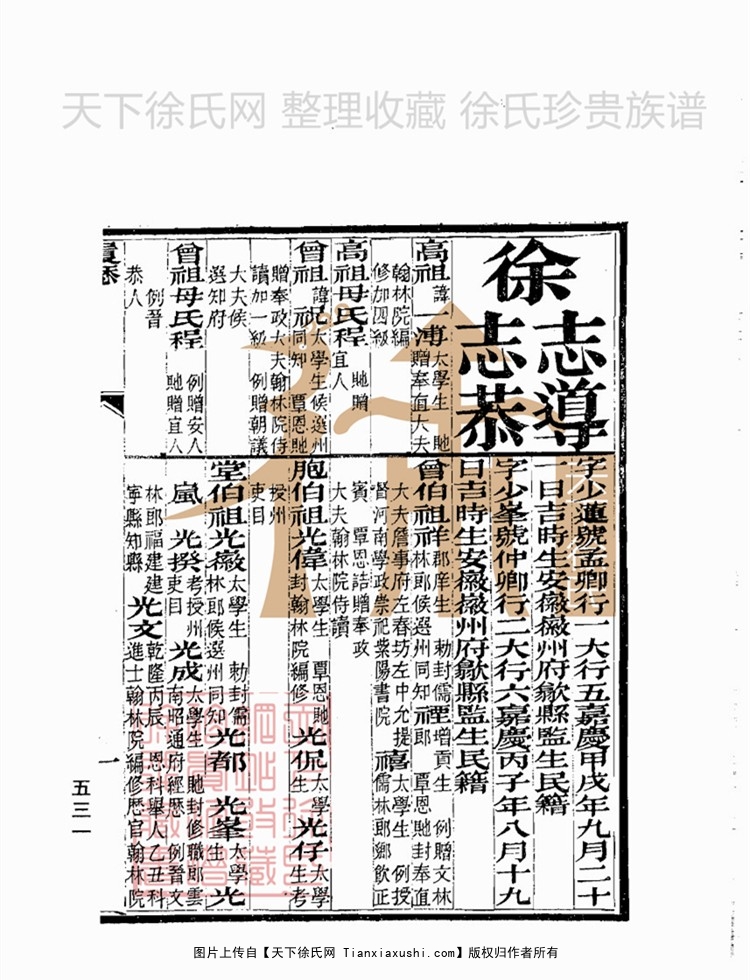 天下徐氏网 整理收藏 徐氏珍贵族谱
徐
志導
志恭
字少蓮號孟卿行一大行五嘉慶甲戌年九月二十
一日吉時生安徽徽州府歙縣監生民籍
字少峯號仲卿行二大行六嘉慶丙子年八月十九
日吉時生安徽徽州府歙縣監生民籍
高祖諱一溥太學生 貤贈奉直大夫
翰林院編修加四級
高祖母氏程 貤贈宜人
曾祖諱祝太學生候選州同知 覃恩貤
贈奉政大夫翰林院侍讀加一級 例贈朝議
大夫候選知府
曾祖母氏程 例贈安人 貤贈宜人
例晉恭人
曾伯祖祥郡庠生 勅封儒林郎候選州同知 禋增貢生 例贈文林郎 覃恩貤封奉直
大夫詹事府左春坊左中允提督河南學政崇祀業陽書院 禧太學生 例授儒林郎鄉飲正
賓 覃恩誥贈奉政大夫翰林院侍讀
胞伯祖光偉太學生 覃恩貤封翰林院編修 光侃太學生 光仔太學生考
授州吏目
堂伯祖光嶶太學生 勅封儒林郎候選州同知 光都 光峯太學生 光
嵐 光揆考授州吏目 光成太學生 貤封修職郎雲南昭通府經歷 例晉文
林郎福建建寧縣知縣 光文乾隆丙辰 恩科舉人乙丑科進士翰林院編修歷官翰林院
一
五三一
图片上传自【天下徐氏网 Tianxiaxushi.com】版权归作者所有